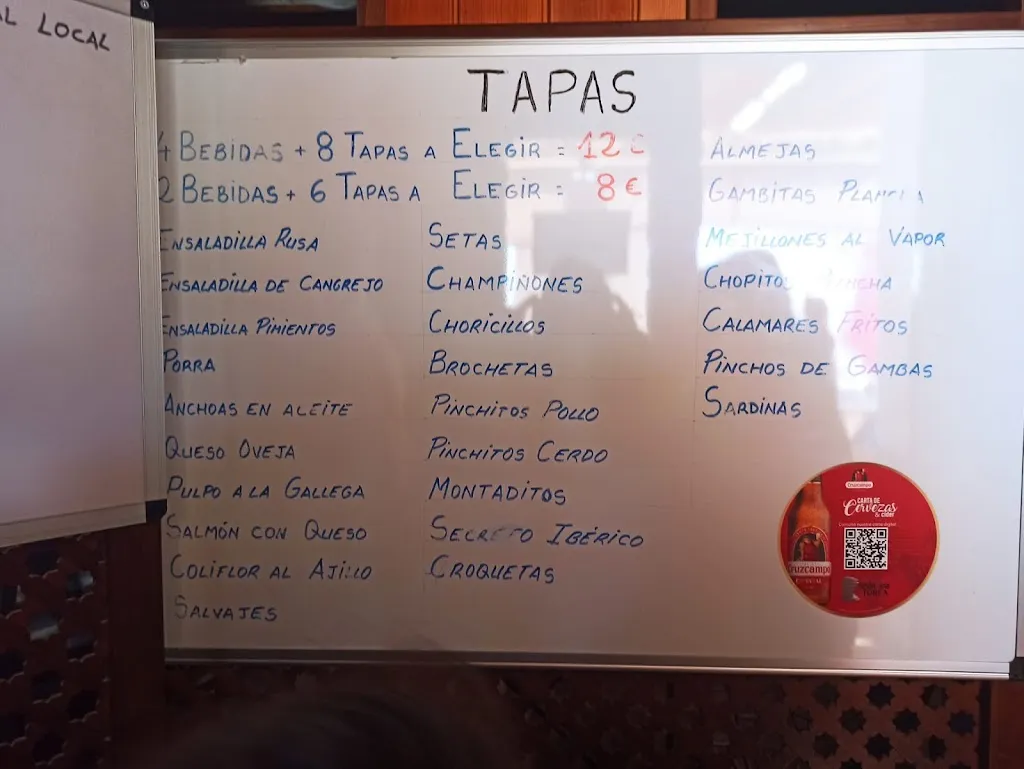 AL LOCAL
TAPAS
4 BEBIDAS + 8 TAPAS A ELEGIR = 12 €
2 BEBIDAS + 6 TAPAS A ELEGIR = 8 €
ENSALADILLA RUSA
ENSALADILLA DE CANGREJO
ENSALADILLA PIMIENTOS
PORRA
ANCHOAS EN ACEITE
QUESO OVEJA
PULPO A LA GALLEGA
SALMÓN CON QUESO
COLIFLOR AL AJILLO
SALVAJES
SETAS
CHAMPIÑONES
CHORICILLOS
BROCHETAS
PINCHITOS POLLO
PINCHITOS CERDO
MONTADITOS
SECRETO IBÉRICO
CROQUETAS
ALMEJAS
GAMBITAS PLANCHA
MEJILLONES AL VAPOR
CHOPITOS PLANCHA
CALAMARES FRITOS
PINCHOS DE GAMBAS
SARDINAS
Cruzcampo
CARTA DE
Cervezas
& CIDRE
Cruzcampo
ESPECIAL